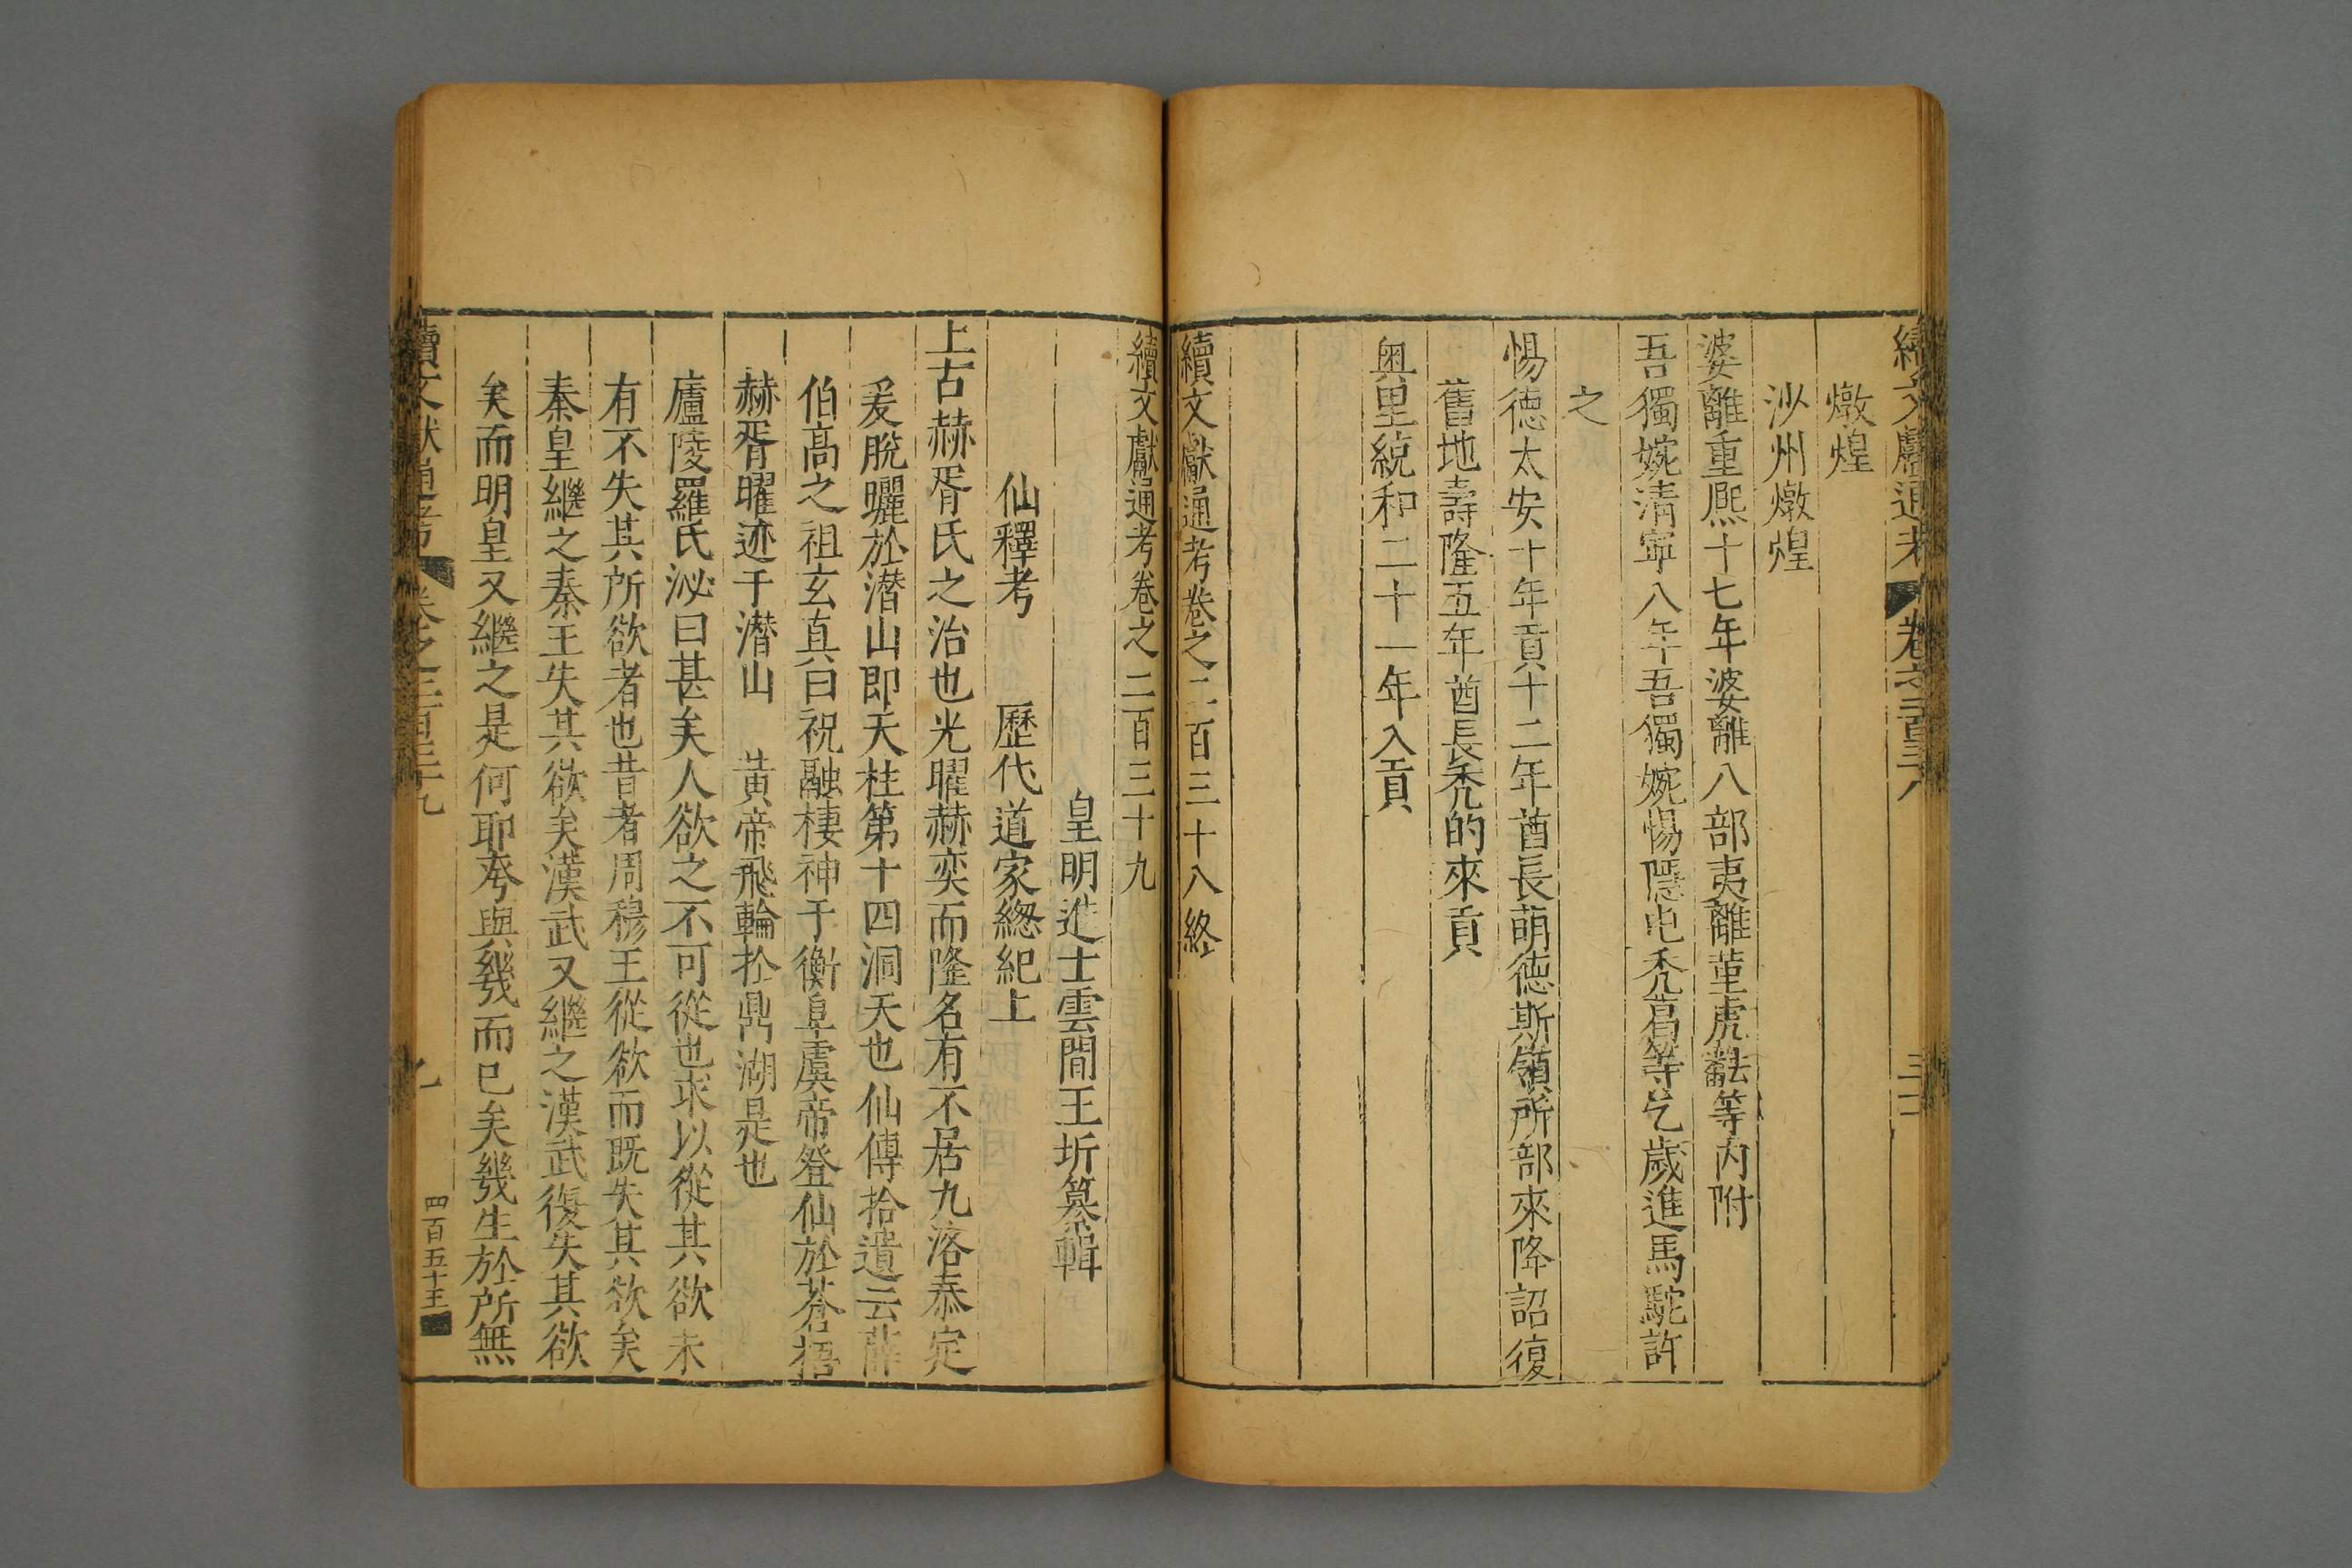 續文獻通考 卷之二百三十八
燉煌
沙州燉煌
婆離重熈十七年婆離八部夷離菫虎等内附
吾獨婉清寧八年吾獨婉惕隱屯禿葛等乞歲進馬駝許
之
惕德太安十年貢十二年酋長萌德斯領所部來降詔復
舊地壽隆五年酋長禿的來貢
奥里統和二十一年入貢
續文獻通考卷之二百三十八終
續文獻通考卷之二百三十九
皇明進士雲間王圻纂輯
仙釋考 歷代道家總紀上
上古赫胥氏之治也光曜赫奕而隆名有不居九洛泰定
爰脫曬於潛山即天柱第十四洞天也仙傳拾遺云薛
伯高之祖玄真曰祝融棲神于衡阜虞帝登仙於蒼梧
赫胥曜迹于潛山 黄帝飛輪於鼎湖是也
廬陵羅氏泌曰甚矣人欲之不可從也求以從其欲未
有不失其所欲者也昔者周穆王從欲而既失其欲矣
秦皇繼之秦王失其欲矣漢武又繼之漢武復失其欲
矣而明皇又繼之是何耶夸與幾而已矣幾生於所無
續文獻通考 卷之二百三十九 一 四百五十王